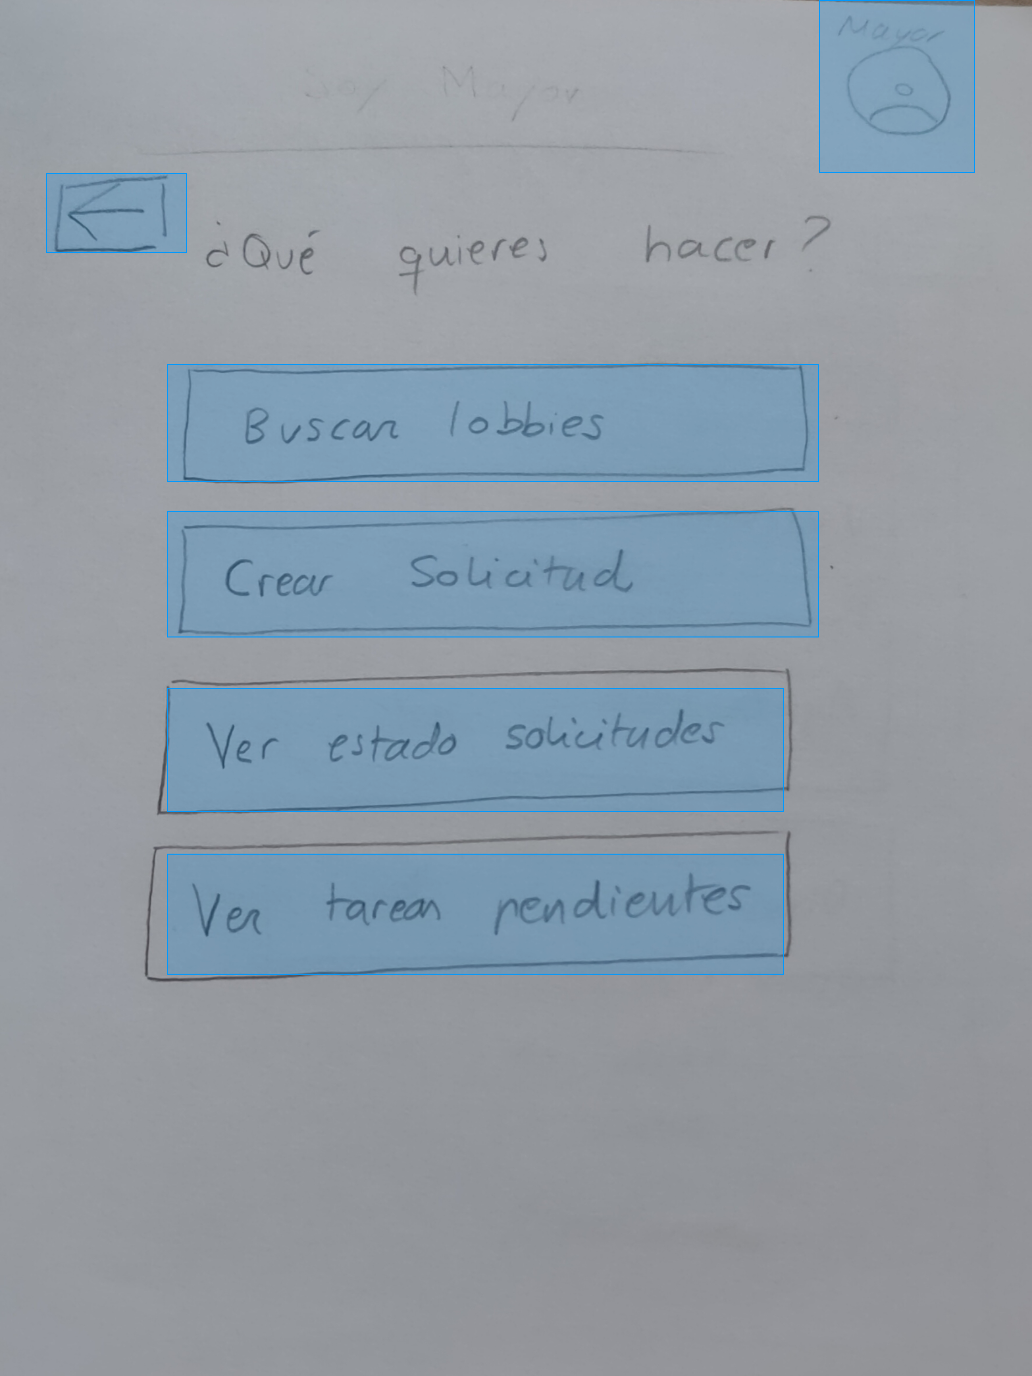 Mayor
Soy Mayor
¿Qué quieres hacer?
Buscar lobbies
Crear Solicitud
Ver estado solicitudes
Ver tareas pendientes